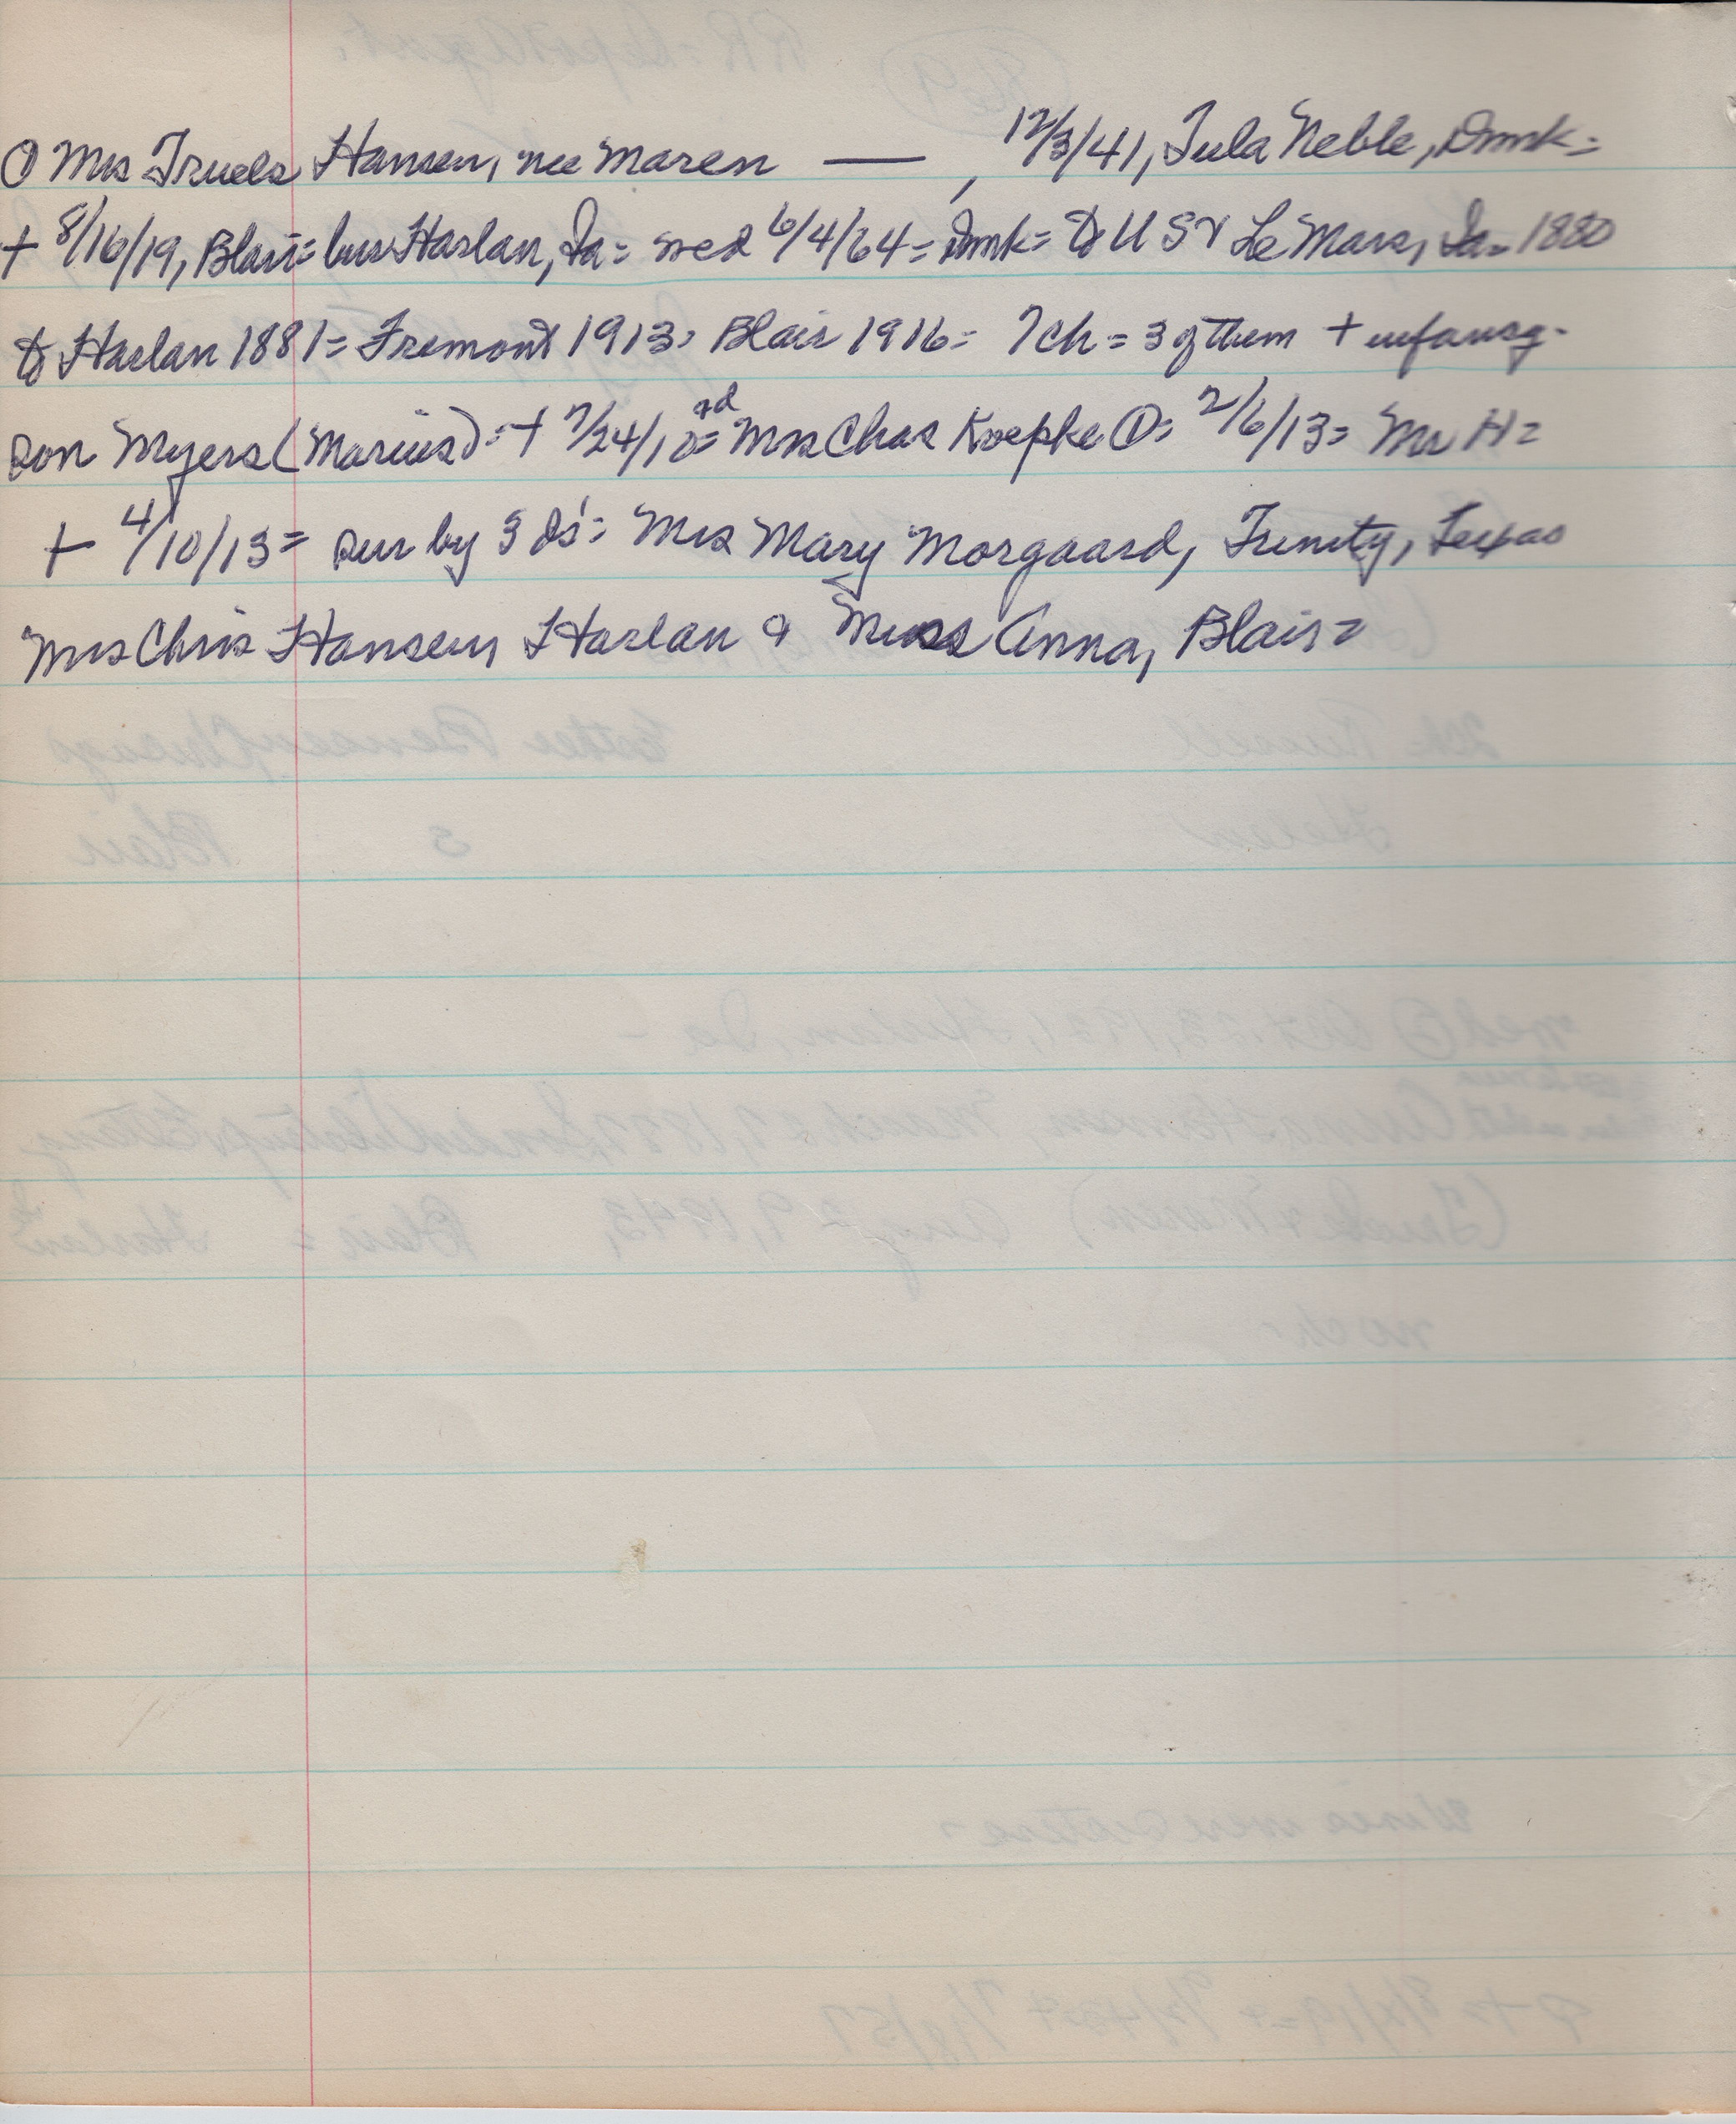 O Mrs Truels Hansen, nee Maren —, 12/3/41, Tula Neble, Dmk=
+ 8/16/19, Blair= bur Harlan, Ia= wed 6/4/64= Dmk= to US & Le Mars, Ia= 1880
to Harlan 1881= Fremont 1913, Blair 1916= 7ch= 3 of them + infancy-
son Myers (Marius)= + 7/24/10= Mrs Chas Koepke = 2/6/13= Mr H=
+ 4/10/13= sur by 3 ds'= Mrs Mary Morgaard, Trinity, Texas
Mrs Chris Hansen, Harlan & Miss Anna, Blair=